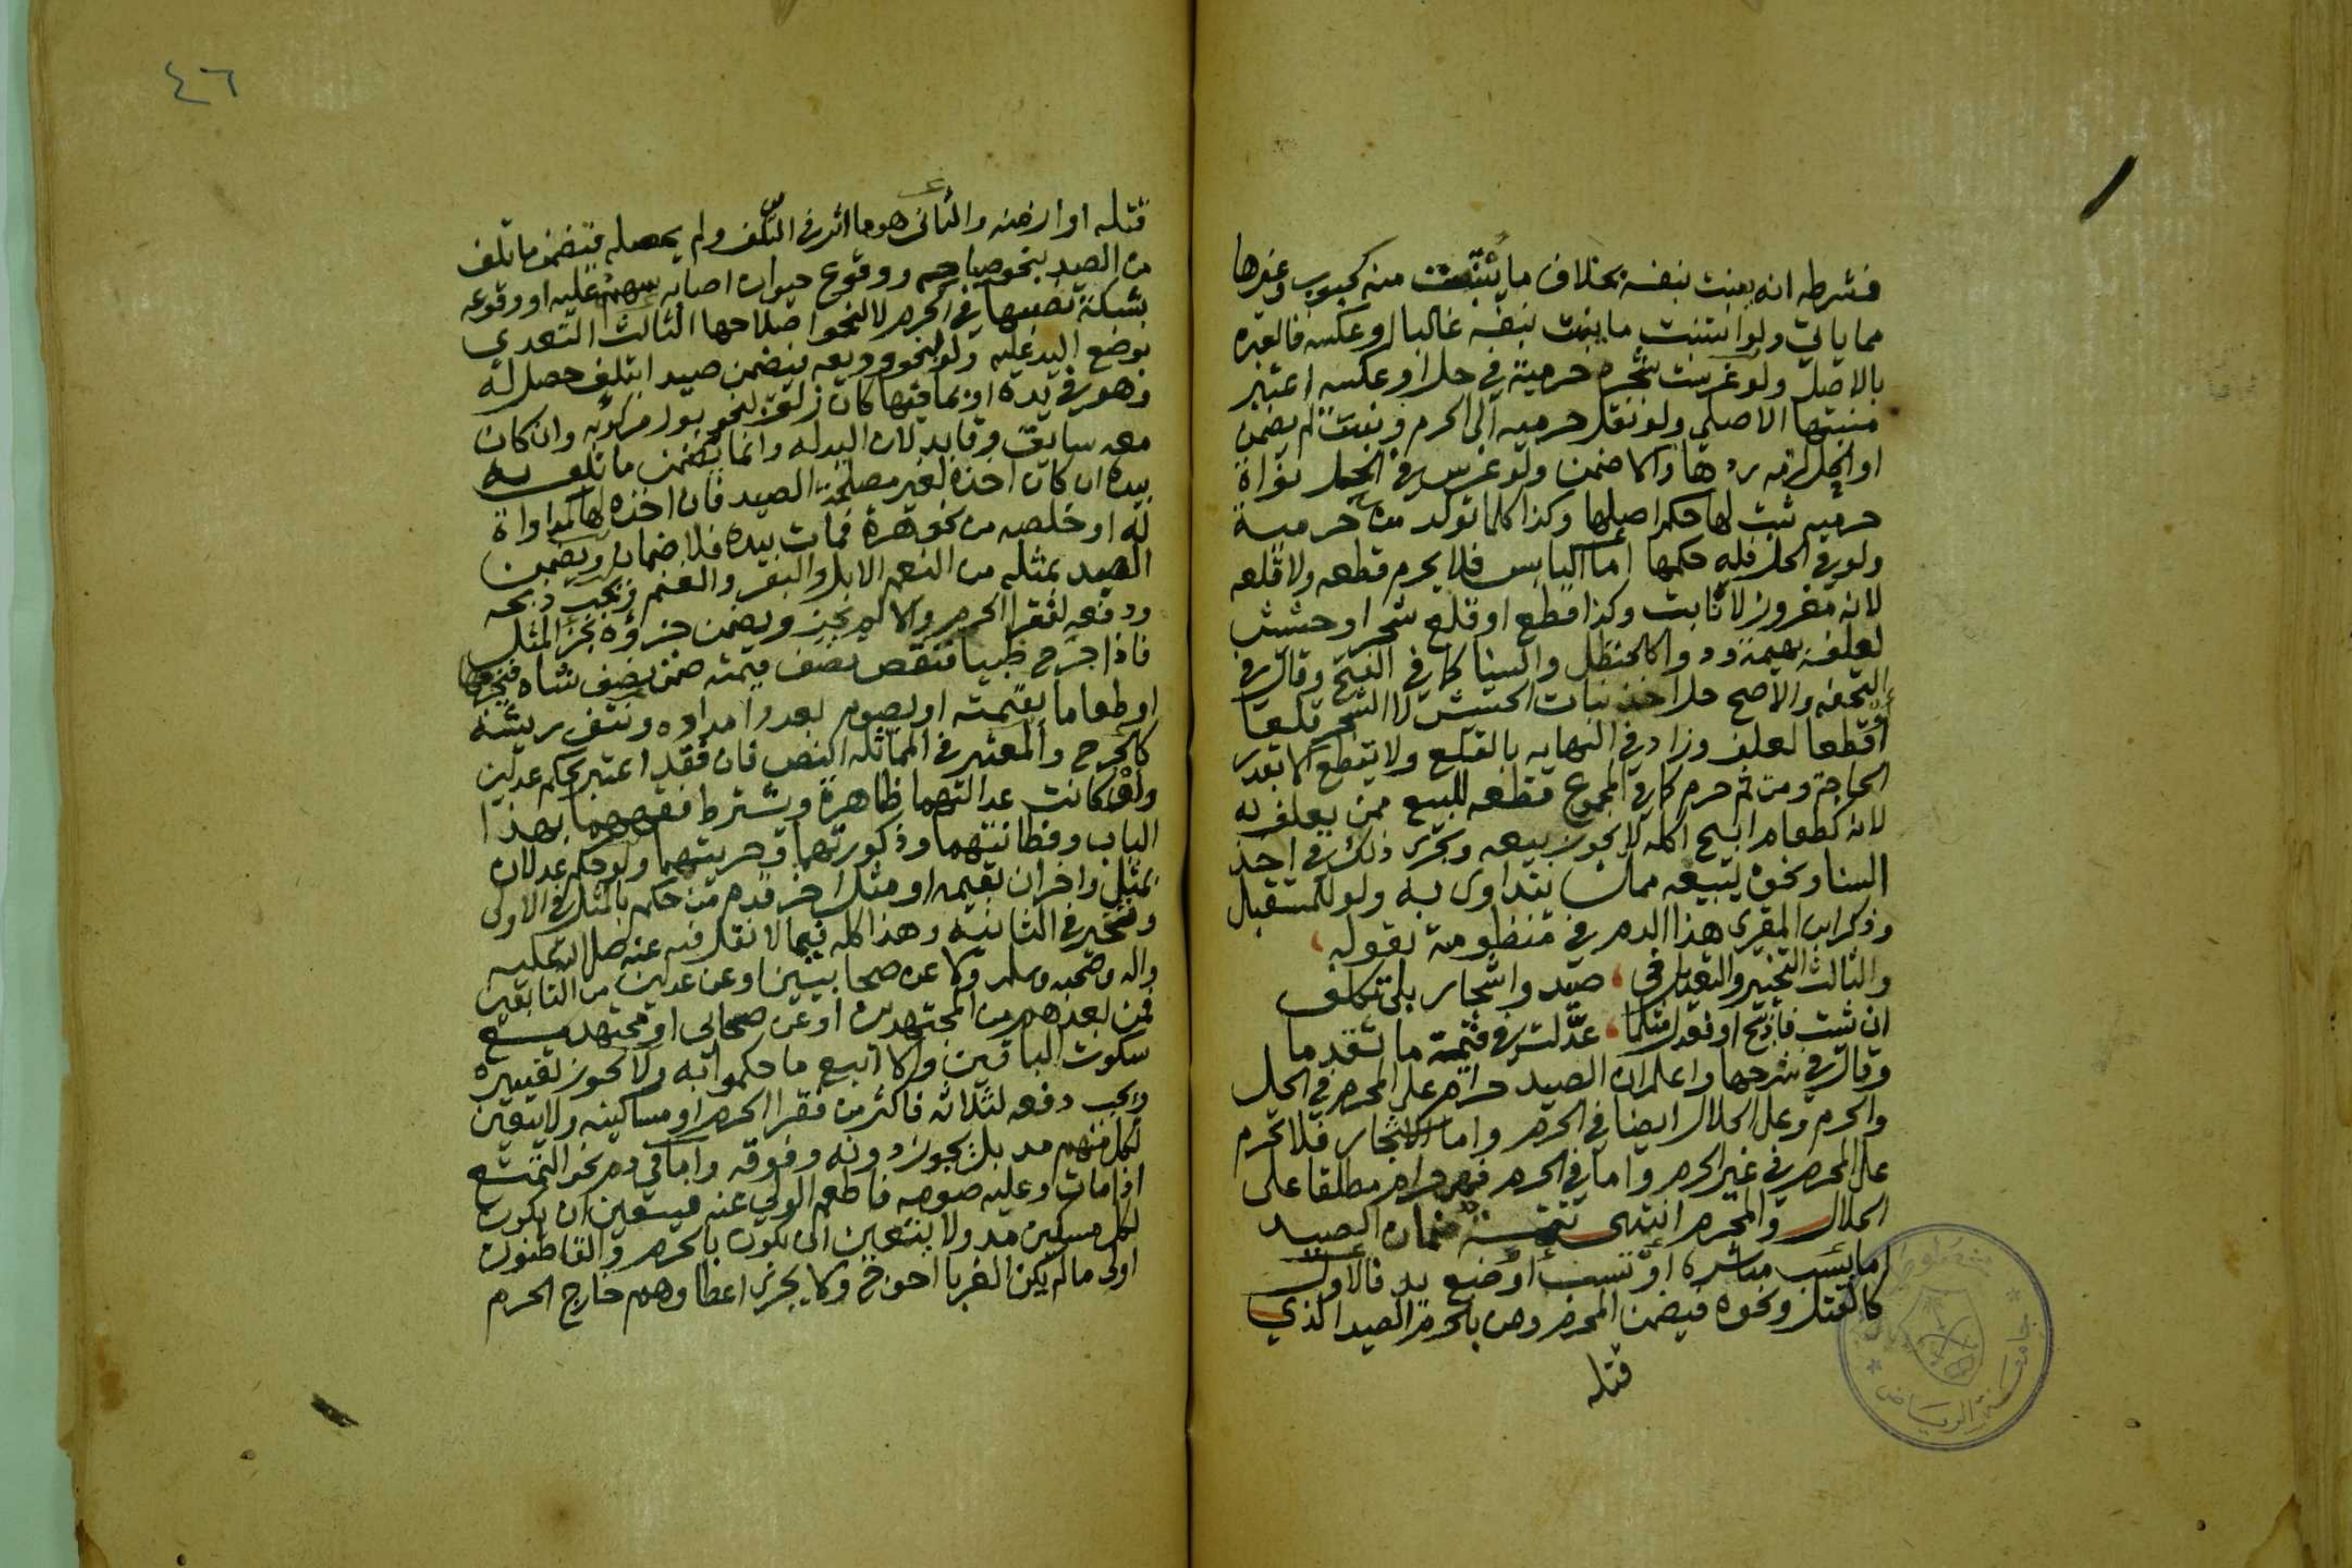 فشرطه انه ينبت بنفسه بخلاف ما يستنبت منه كحبوب وغيرها
مما ياتي ولو استنبت ما ينبت بنفسه غالبا او عكسه فالعبرة
بالاصل ولو غرست شجرة حرمية في حل او عكسه اعتبر
منبتها الاصلي ولو نقل حرميه الى الحرم ونبتت لم يضمن
او الحل لزمه ردها والا ضمن ولو غرس في الحل نواة
حرميه ثبت لها حكم اصلها وكذا كلما تولد من حرمية
ولو في الحل فله حكمها اما اليابس فلا يحرم قطعه ولا قلعه
لانه مغروز لا نابت وكذا قطع او قلع شجر او حشيش
لعلف بهيمة ودوا كالحنظل والسنا كما في الفتح وقال في
التحفه والاصح حل اخذ نبات الحشيش لا الشجر قلعا
او قطعا لعلف وزاد في النهايه بالقلع ولا يقطع الا بقدر
الحاجة ومن ثم حرم كما في المجموع قطعه للبيع ممن يعلف به
لانه كطعام ابيح اكله لا يجوز بيعه ويجري ذلك في اخذ
السنا ونحوه ليبيعه ممن يتداوى به ولو للمستقبل
وذكر ابن المقري هذا الدم في منظومة بقوله
والثالث التخيير والتعديل في صيد واشجار بلا تكلف
ان شئت فاذبح او فعدل مثل ما عدّلت في قيمة ما تقدما
وقال في شرحها واعلم ان الصيد حرام على المحرم في الحل
والحرم وعلى الحلال ايضا في الحرم واما الاشجار فلا تحرم
على المحرم في غير الحرم واما في الحرم فهي حرام مطلقا على
الحلال والمحرم انتهى تتمة ضمان الصيد
اما بسبب مباشرة او تسبب او وضع يد فالاول
كالقتل ونحوه فيضمن المحرم ومن بالحرم الصيد الذي
قتله
٤٦
قتله او ازمنه والثاني هو ما اثر في التلف ولم يحصله فيضمن ما تلف
من الصيد بنحو صياحه ووقوع حيوان اصابه سهم عليه او وقوعه
بشبكة نصبها في الحرم لا لنحو اصلاحها الثالث التعدي
بوضع اليد عليه ولو بنحو وديعه فيضمن صيدا تلف حصل له
وهو في يده او بما فيها كان زلق بنحو بول مركوبه وان كان
معه سايق وقايد لان اليد له وانما يضمن ما تلف به
بيده ان كان اخذه لغير مصلحة الصيد فان اخذه لها كمداواة
له او خلصه من نحو هرة فمات بيده فلا ضمان ويضمن
الصيد بمثله من النعم الابل والبقر والغنم ويجب ذبحه
ودفعه لفقرا الحرم والا لم يجز ويضمن جزؤه بجزء المثل
فاذا جرح ظبيا فنقص نصف قيمته ضمن نصف شاه فيخرجها
او طعاما بقيمته او يصوم بعدد امداده ونتف ريشه
كالجرح والمعتبر في المماثلة النص فان فقد اعتبر بحكم عدلين
وان كانت عدالتهما ظاهرة ويشترط فقههما بهذا
الباب وفطانتهما وذكورتهما وحريتهما ولو حكم عدلان
بمثل واخران بقيمه او مثل اخر قدم من حكم بالمثل في الاولى
وتخير في الثانية وهذا كله فيما لا نقل فيه عنه صلى الله عليه
واله وصحبه وسلم ولا عن صحابيين او عن عدلين من التابعين
فمن بعدهم من المجتهدين او عن صحابي او مجتهد مع
سكوت الباقين والا اتبع ما حكموا به ولا يجوز تغييره
ويجب دفعه لثلاثه فاكثر من فقرا الحرم او مساكينه ولا يتعين
لكل منهم مد بل يجوز دونه وفوقه واما في دم نحو التمتع
اذا مات وعليه صومه فاطعم الولي عنه فيتعين ان يكون
لكل مسكين مد ولا يتعين ان يكون بالحرم والقاطنون
اولى ما لم يكن الغربا احوج ولا يجزي اعطاوهم خارج الحرم